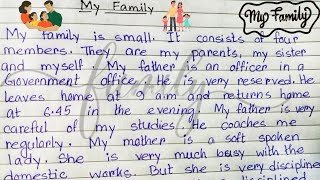 My Family
My Family
My family is small. It consists of four
members. They are my parents, my sister
and myself. My father is an officer in a
Government office. He is very reserved. He
leaves home at 9 a.m and returns home
at 6.45 in the evening. My father is very
careful of my studies. He coaches me
regularly. My mother is a soft spoken
lady. She is very much busy with the
domestic works. But she is very discipline
family